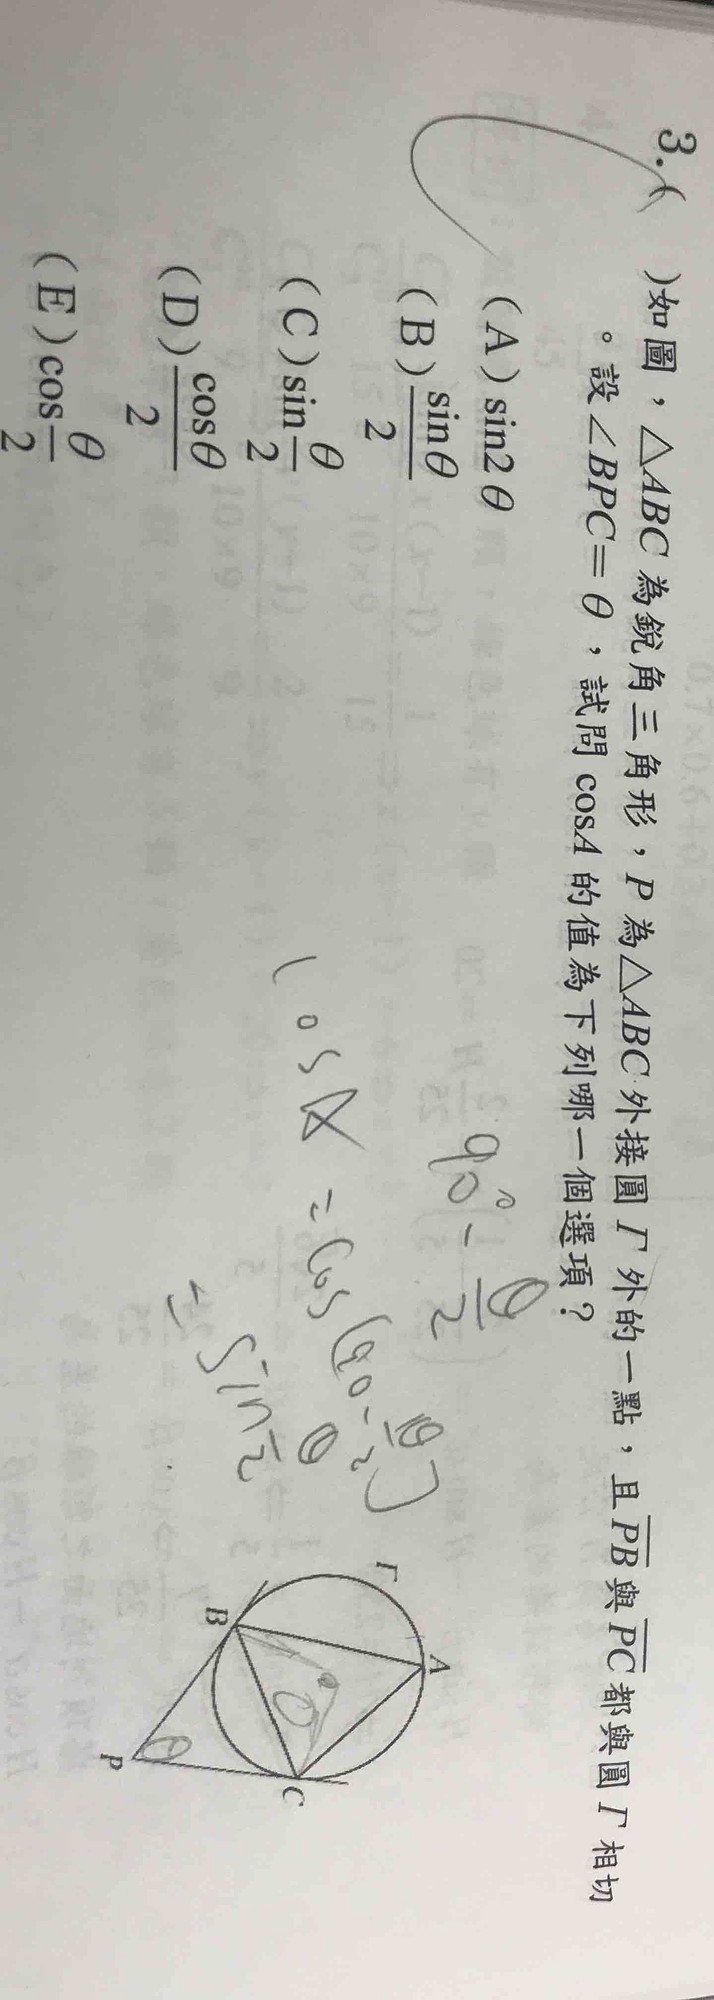 3.(　　)如圖，△ABC為銳角三角形，P為△ABC外接圓Γ外的一點，且PB與PC都與圓Γ相切
。設∠BPC=θ，試問cosA的值為下列哪一個選項？
(A) sin2θ
(B) sinθ/2
(C) sin θ/2
(D) cosθ/2
(E) cos θ/2
90°-θ/2
cosA = cos(90-θ/2)
= sin θ/2
Γ
A
B
C
P
θ